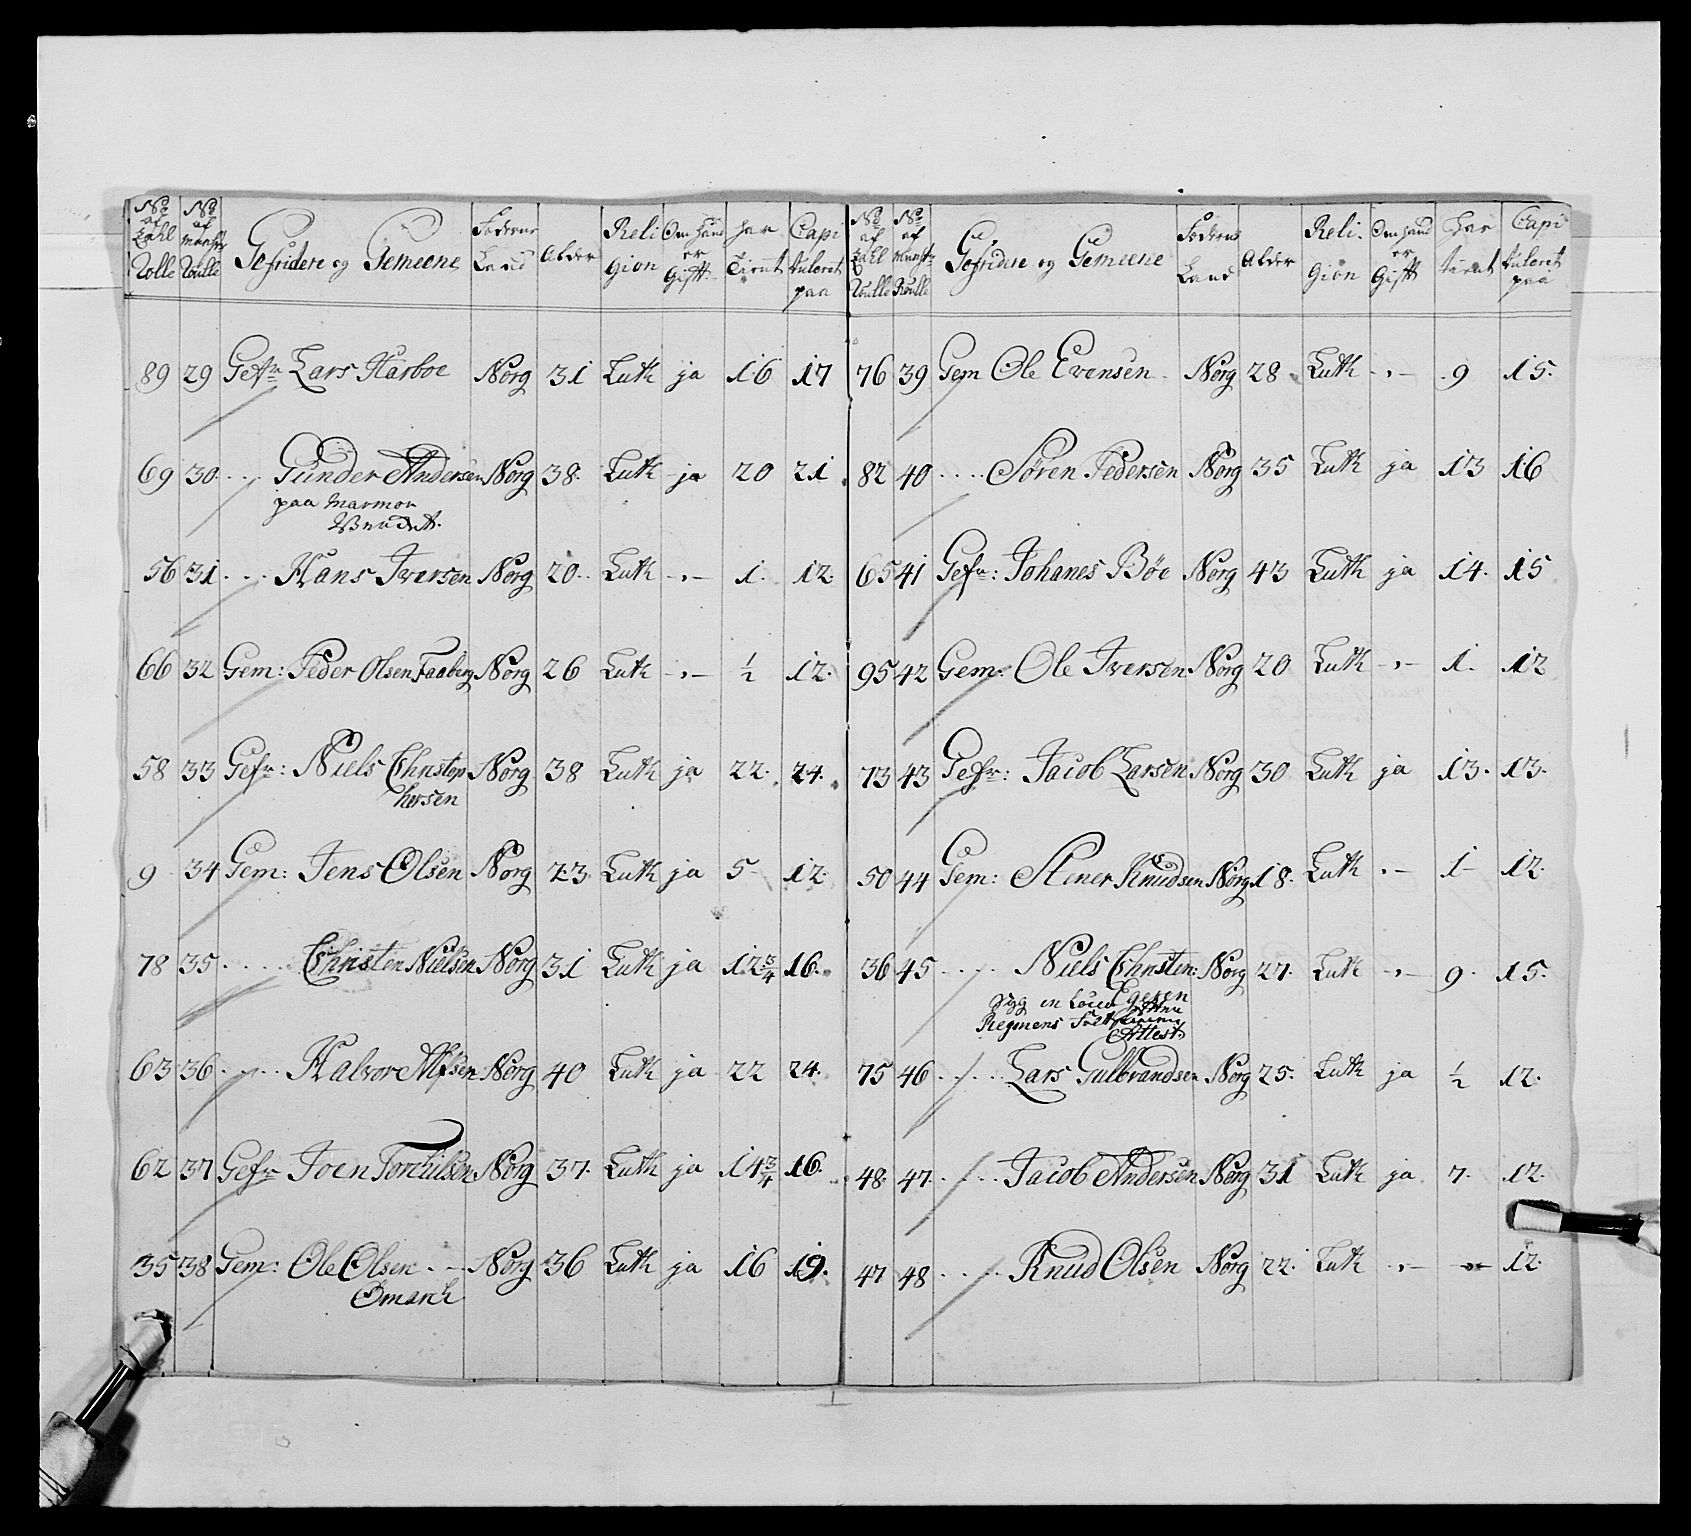 No af Tahl Rolle | No af Mynster Roulle | Gefridere og Gemeene | Føderne Land | Alder | Religion | Om hand er Gifft | har Tient | Capituleret paa
89 29 Gefr: Lars Harboe Norg 31 Luth ja 16 17
69 30 .... Gunder Andersen Norg 38. Luth ja 20 21
paa Marmor
Brudet.
56 31 .... Hans Iversen Norg 20. Luth .,- 1. 12.
66 32 Gem: Peder Olsen Faaberg Norg 26 Luth .,- ½ 12.
58 33 Gefr: Niels Christop Norg 38 Luth ja 22. 24.
hersen
9 34 Gem: Jens Olsen Norg 23 Luth ja 5 12.
78 35 ..... Christen Nielsen Norg 31 Luth ja 12¾ 16.
63 36 ..... Halvor Alfsen Norg 40 Luth ja 22 24.
62 37 Gefr Joen Torchilsen Norg 37. Luth ja 14¾ 16.
35 38 Gem: Ole Olsen .- Norg 36 Luth ja 16 19.
Ømarch
No af Tahl Roulle | No af Munster Roulle | Gefridere og Gemeene | Føderne Land | Alder | Religion | Om hand er Gifft | har tient | Capituleret paa
76 39 Gem Ole Evensen Norg 28 Luth .,- 9 15.
82 40 ..... Søren Pedersen Norg 35 Luth ja 13 16
65 41 Gefr: Johanes Bøe Norg 43 Luth ja 14. 15
95 42 Gem: Ole Iversen Norg 20 Luth .,- 1. 12
73 43 Gefr: Jacob Larsen Norg 30 Luth ja 13. 13.
50 44 Gem: Stener Knudsen Norg 18. Luth .- 1- 12.
36 45 ..... Niels Christen: Norg 27. Luth .,- 9. 15.
Egeren
Syg
Regimens
Attest.
75 46 ..... Lars Gulbrandsen Norg 25. Luth ja ½ 12.
48. 47. .... Jacob Andersen Norg 31 Luth ja 7. 12.
47 48 ..... Knud Olsen Norg 22. Luth .,- - 12.